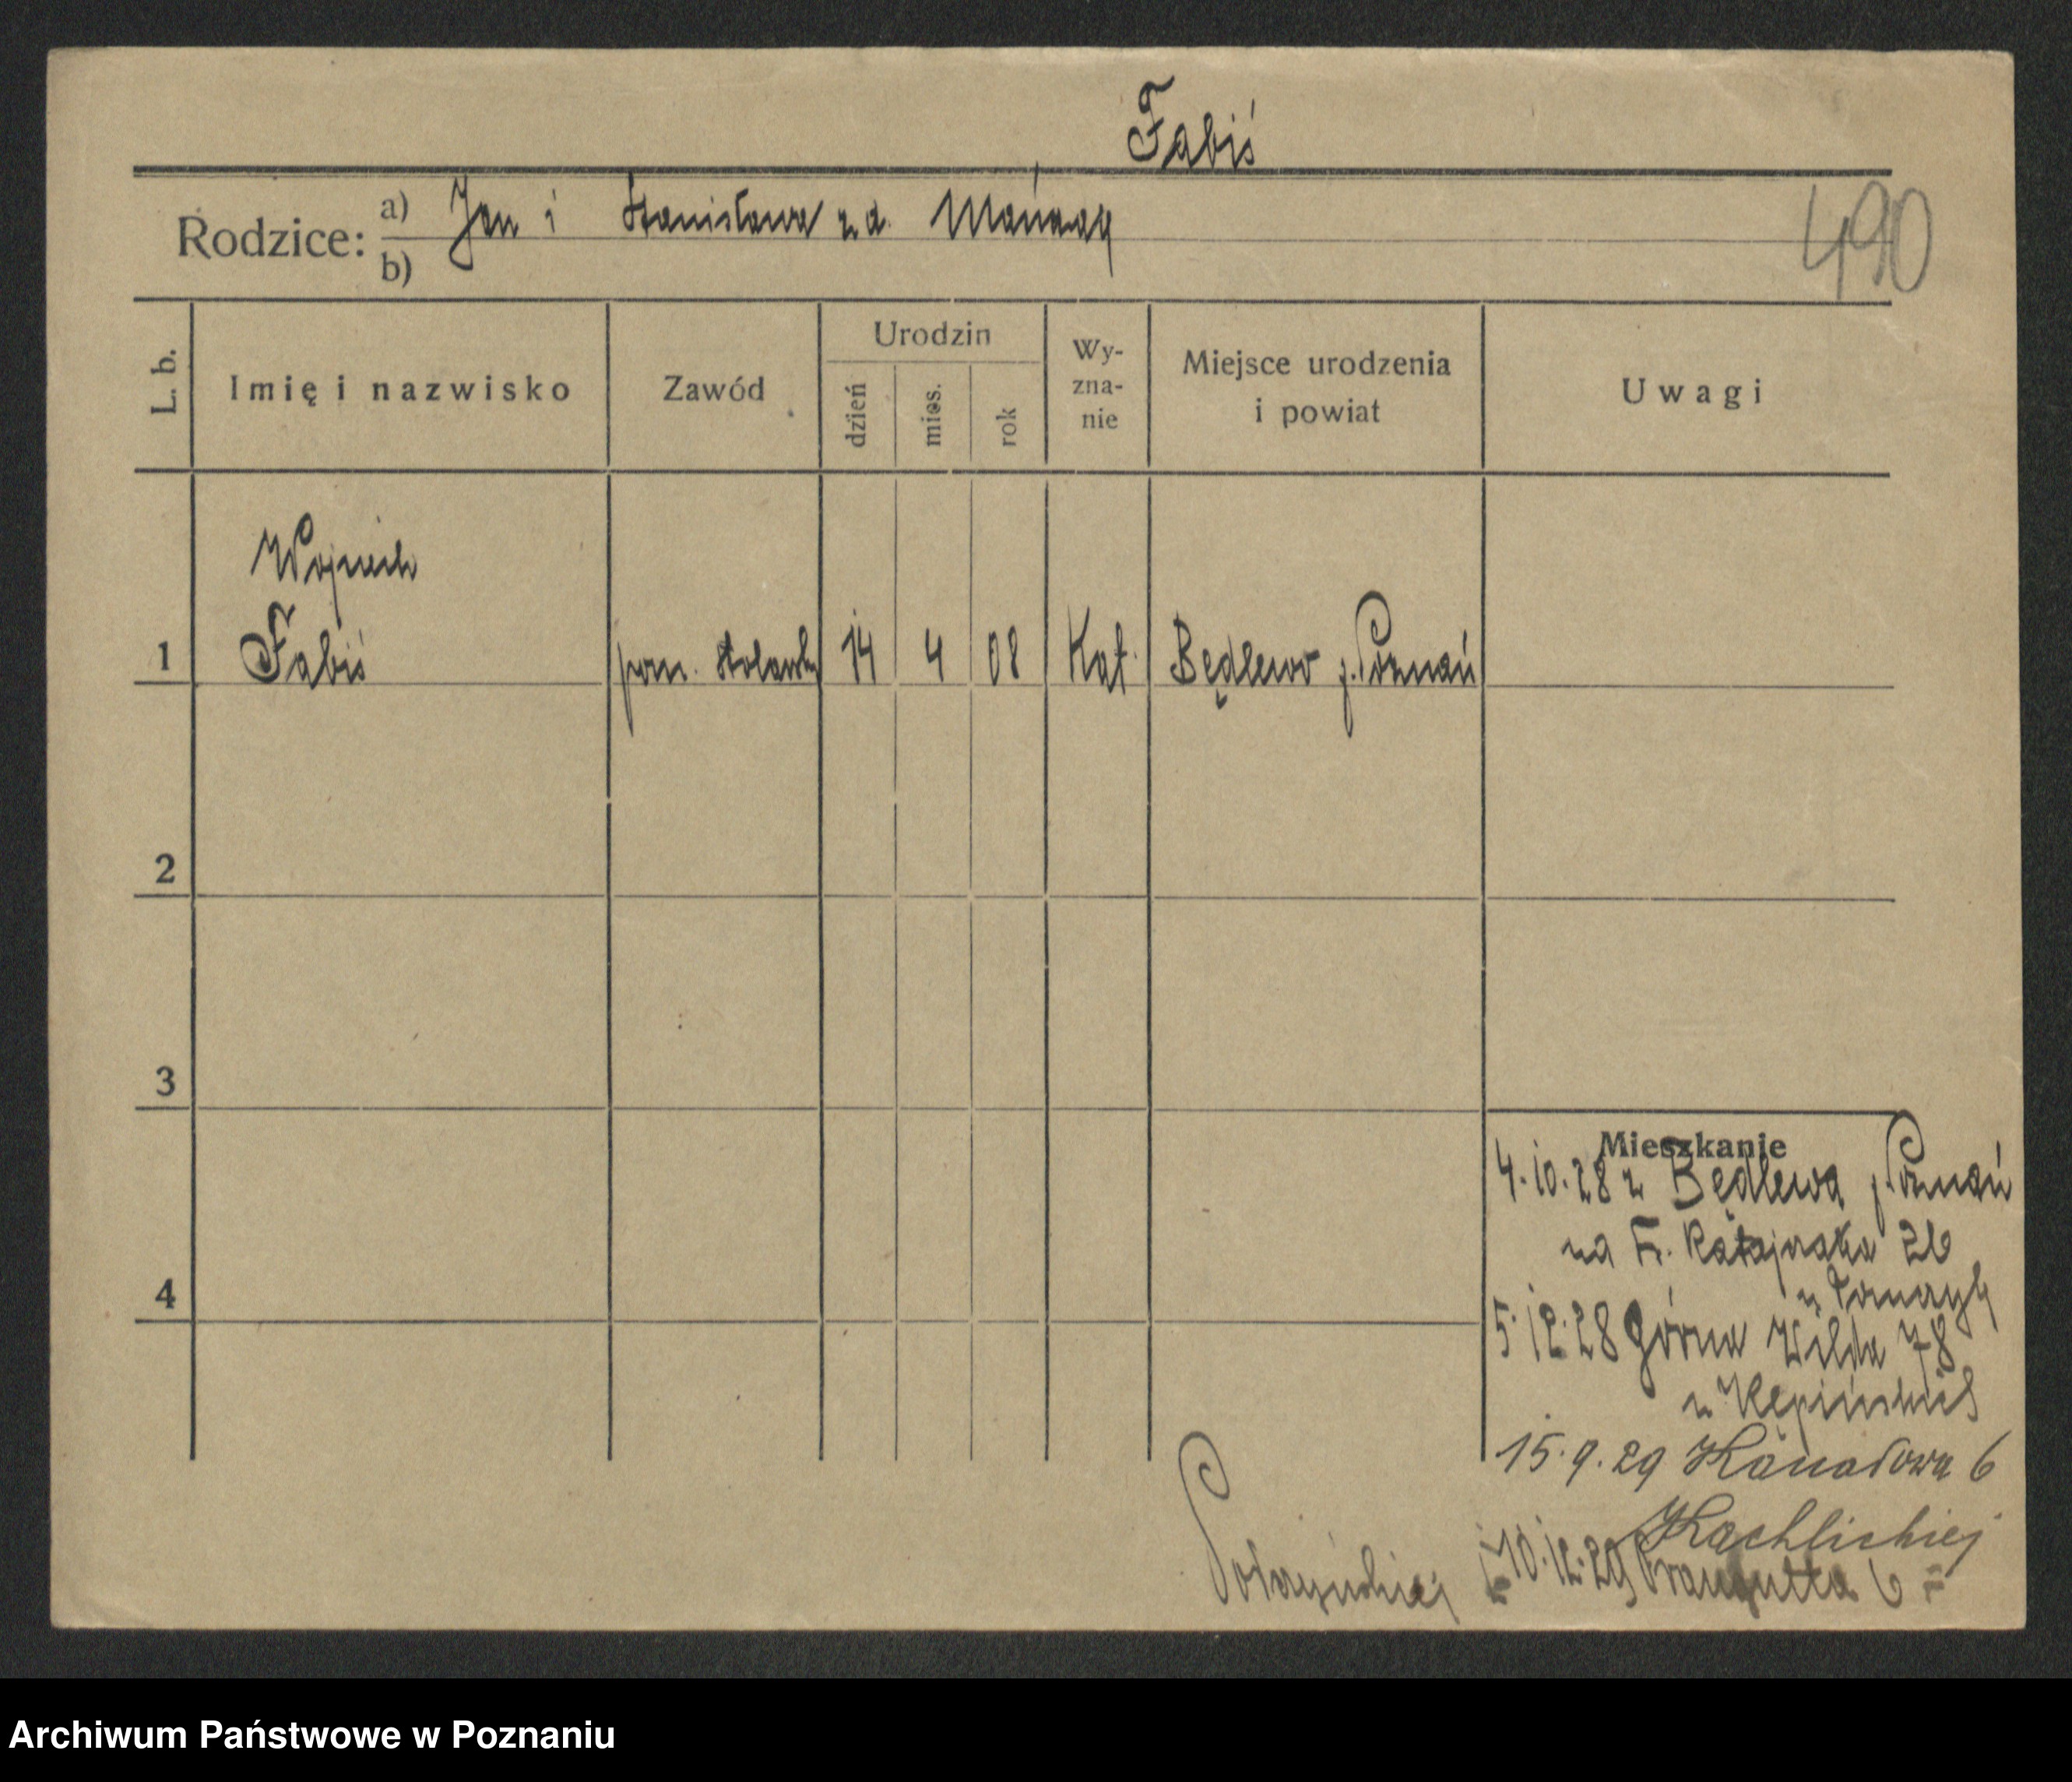 Fabiś
Rodzice: a) Jan i Stanisława z d. Mańczak
b)
490
L. b.
Imię i nazwisko
Zawód
Urodzin
dzień
mies.
rok
Wy-
zna-
nie
Miejsce urodzenia
i powiat
Uwagi
Wojciech
1 Fabiś pom. stolarski 14 4 08 Kat. Będlewo p. Poznań
2
3
4
Mieszkanie
4.10.28 z Będlewa p. Poznań
na Fr. Ratajczaka 26
5.12.28 Górna Wilda 78
15.9.29 Kanałowa 6
Kachlickiej
10.12.29 Traugutta 6
Archiwum Państwowe w Poznaniu